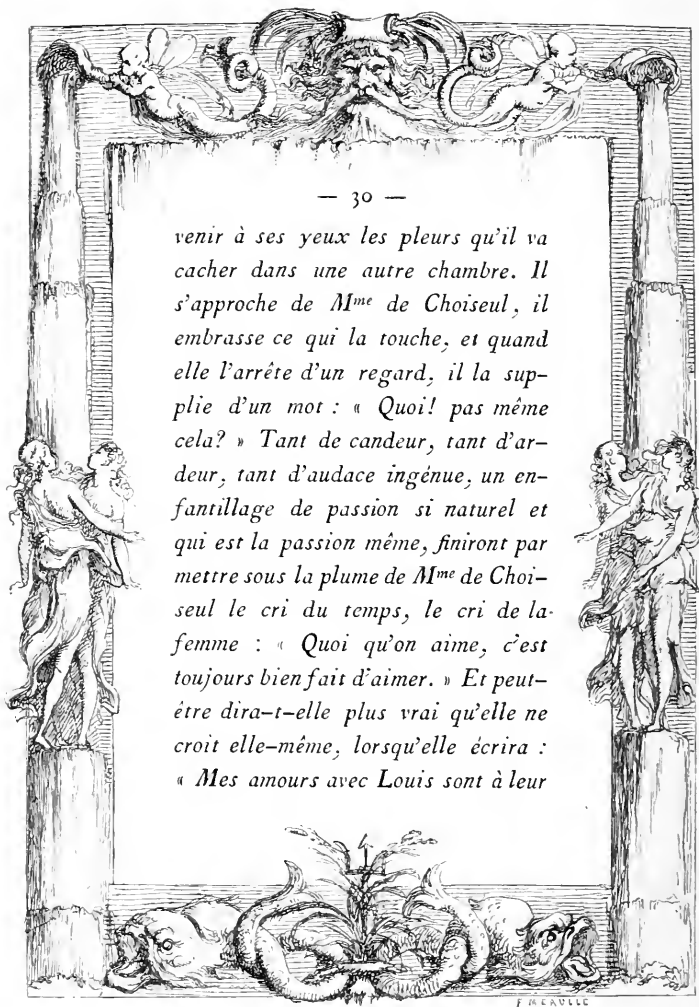 — 30 —
venir à ses yeux les pleurs qu'il va
cacher dans une autre chambre. Il
s'approche de Mme de Choiseul, il
embrasse ce qui la touche, et quand
elle l'arrête d'un regard, il la sup-
plie d'un mot : « Quoi! pas même
cela? » Tant de candeur, tant d'ar-
deur, tant d'audace ingénue, un en-
fantillage de passion si naturel et
qui est la passion même, finiront par
mettre sous la plume de Mme de Choi-
seul le cri du temps, le cri de la
femme : « Quoi qu'on aime, c'est
toujours bien fait d'aimer. » Et peut-
être dira-t-elle plus vrai qu'elle ne
croit elle-même, lorsqu'elle écrira :
« Mes amours avec Louis sont à leur
F MEAULLE